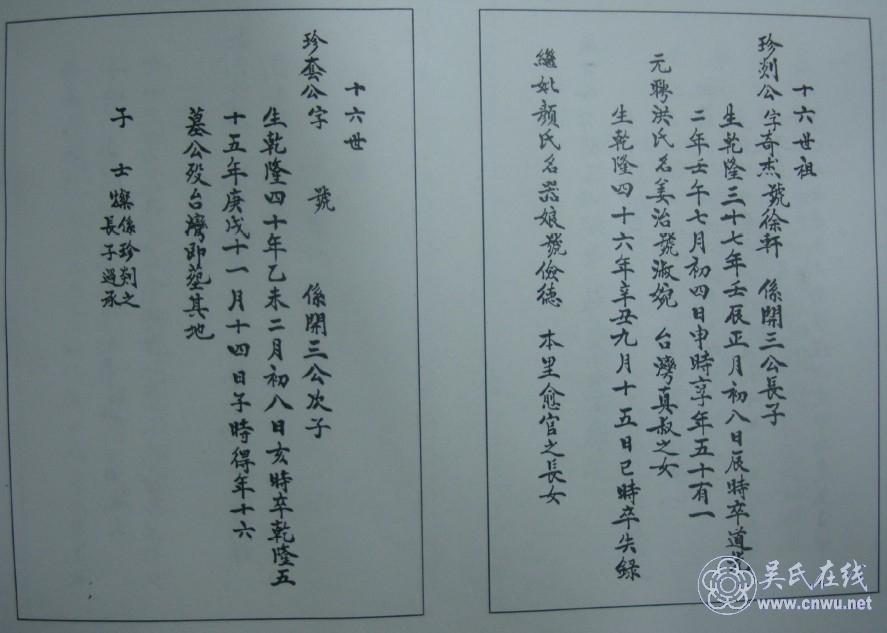 十六世祖
珍剡公字奇杰號徐軒 係開三公長子
生乾隆三十七年壬辰正月初八日辰時卒道光
二年壬午七月初四日申時享年五十有一
元聘洪氏名姜治號淑婉 台灣真叔之女
生乾隆四十六年辛丑九月十五日巳時卒失録
繼妣顏氏名 娘號儉德 本里愈官之長女
十六世
珍套公字 號 係開三公次子
生乾隆四十年乙未二月初八日亥時卒乾隆五
十五年庚戌十一月十四日子時得年十六
墓公殁台灣即塟其地
子 士燦係珍剡之
長子過承
吴氏在线
www.cnwu.net